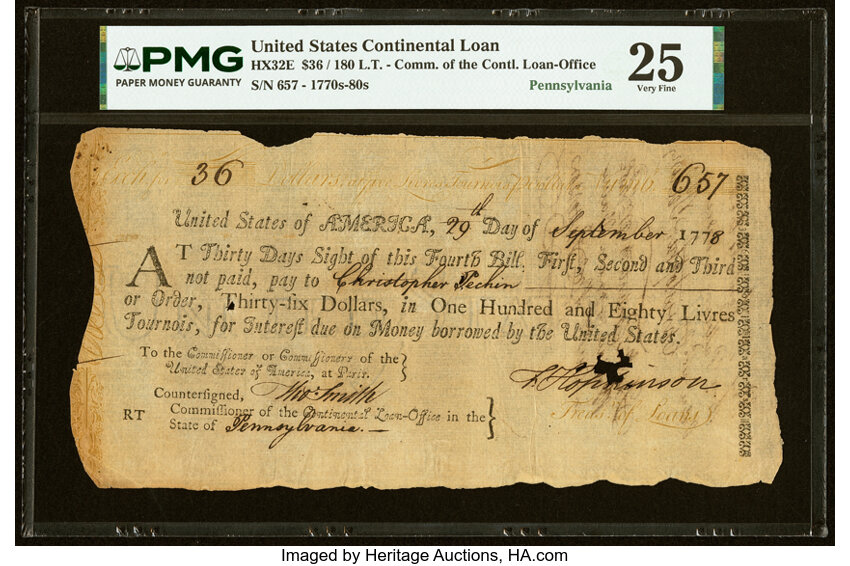 PMG
PAPER MONEY GUARANTY
United States Continental Loan
HX32E $36 / 180 L.T. - Comm. of the Contl. Loan-Office
S/N 657 - 1770s-80s
Pennsylvania
25
Very Fine
36 Dollars, 657
United States of AMERICA, 29th Day of September 1778
AT Thirty Days Sight of this Fourth Bill, First, Second and Third
not paid, pay to Christopher
or Order, Thirty-six Dollars, in One Hundred and Eighty Livres
Tournois, for Interest due on Money borrowed by the United States.
To the Commissioner or Commissioners of the
United States of America, at Paris.
F Hopkinson
Countersigned, Thos Smith
Treasr. of Loans
RT Commissioner of the Continental Loan-Office in the
State of Pennsylvania.—
Imaged by Heritage Auctions, HA.com